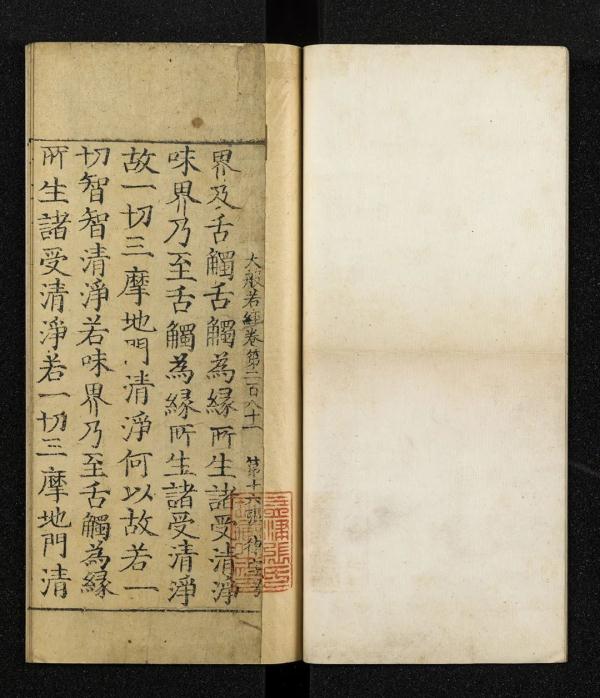 大般若經卷第二百八十一 第十六張
界及舌觸舌觸為緣所生諸受清淨
味界乃至舌觸為緣所生諸受清淨
故一切三摩地門清淨何以故若一
切智智清淨若味界乃至舌觸為緣
所生諸受清淨若一切三摩地門清